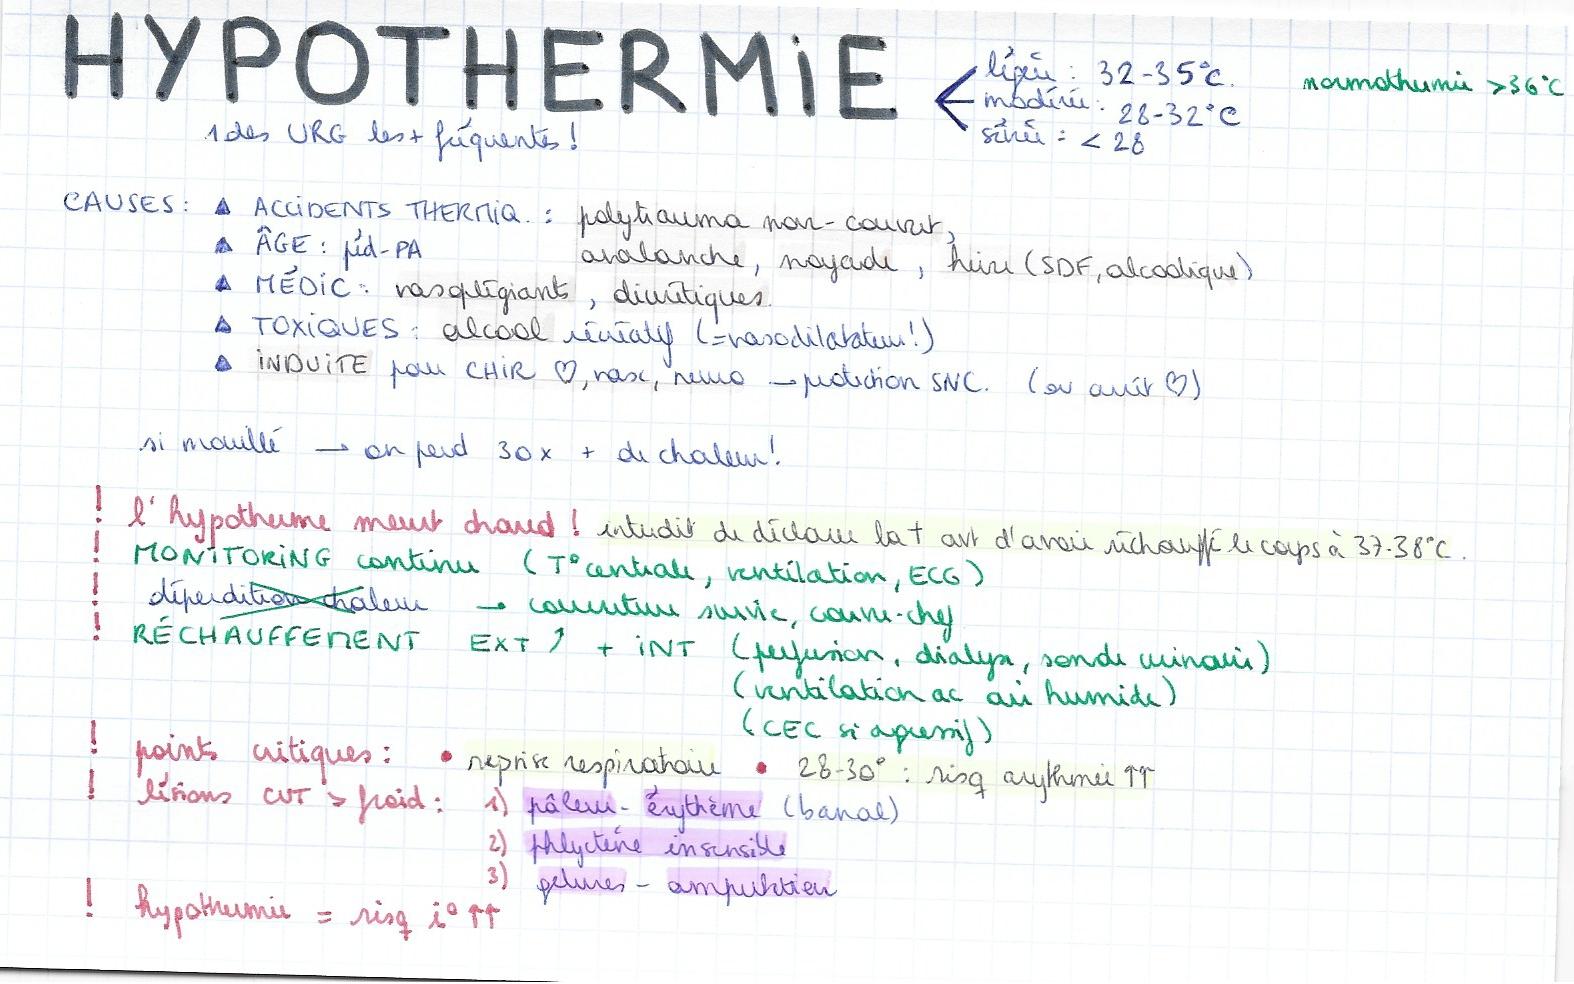 HYPOTHERMiE
légère : 32-35°C.
modérée : 28-32°C
sévère : < 28
normothermie >36°C
1 des URG les + fréquentes !
CAUSES : ▲ ACCiDENTS THERMiQ. : polytrauma non-couvert,
avalanche, noyade, hiver (SDF, alcoolique)
▲ ÂGE : péd-PA
▲ MÉDiC : vasoplégiants, diurétiques
▲ TOXiQUES : alcool récréatif (=vasodilatateur!)
▲ iNDUiTE pour CHiR ♡, vasc, neuro → protection SNC. (ou arrêt ♡)
si mouillé → on perd 30x + de chaleur!
! l'hypotherme meurt chaud ! interdit de déclarer la † avt d'avoir réchauffé le corps à 37-38°C.
! MONiTORiNG continu (T° centrale, ventilation, ECG)
! déperdition chaleur → couverture survie, couvre-chef
! RÉCHAUFFEMENT EXT ↗ + iNT (perfusion, dialyse, sonde urinaire)
(ventilation ac air humide)
(CEC si agressif)
! points critiques : • reprise respiratoire • 28-30° : risq arythmie ↑↑
! lésions CUT > froid : 1) pâleur - érythème (banal)
2) phlyctène insensible
3) gelures - amputation
! hypothermie = risq i° ↑↑